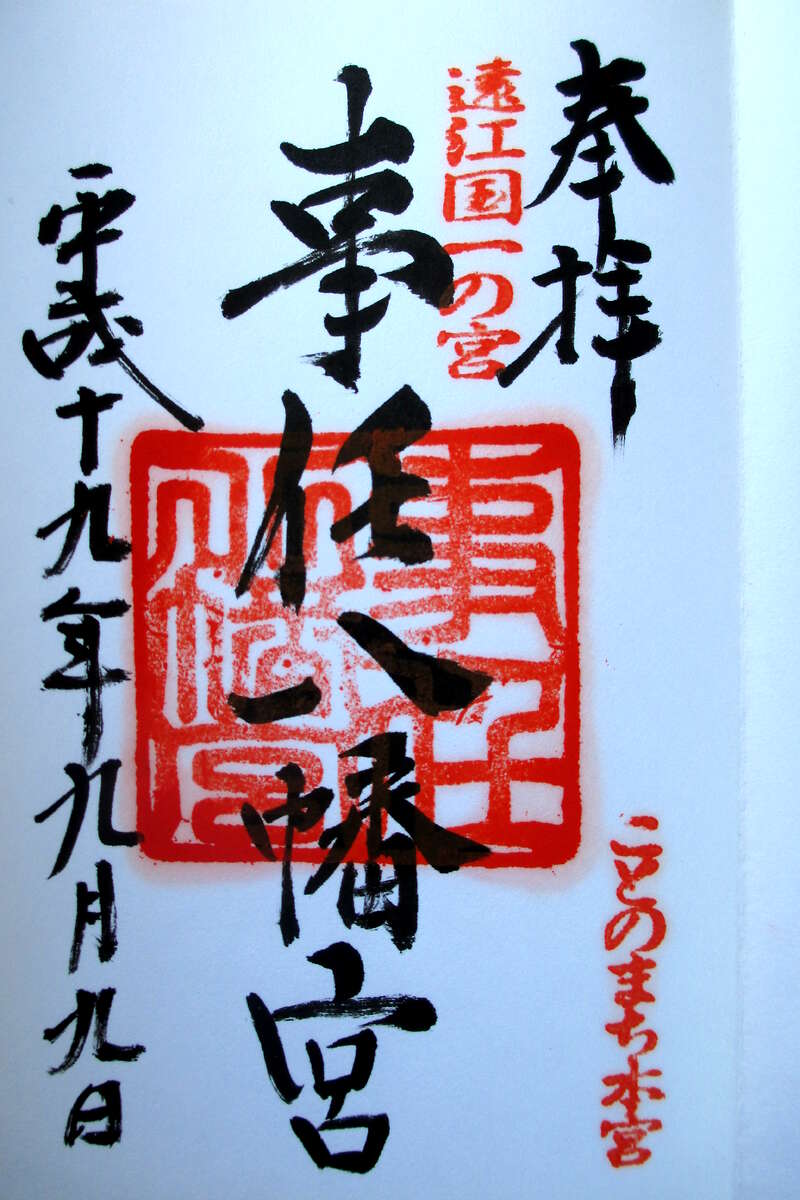 奉拝
遠江国一の宮
ことのまち本宮
事任八幡宮
事任八幡宮
平成十九年九月九日